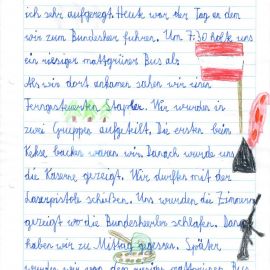 ich sehr aufgeregt. Heute war der Tag an dem
wir zum Bundesheer fuhren. Um 7:30 holte uns
ein riesiger mattgrüner Bus ab.
Als wir dort ankamen sahen wir einen
Ferngesteuerten Stapler. Wir wurden in
zwei Gruppen aufgeteilt. Die ersten beim
Kekse backen waren wir. Danach wurde uns
die Kaserne gezeigt. Wir durften mit der
Laserpistole schießen. Uns wurden die Zimmer
gezeigt wo die Bundesheerler schlafen. Danach
haben wir zu Mittag gegessen. Später
wurden wir von dem riesigen mattgrünen Bus